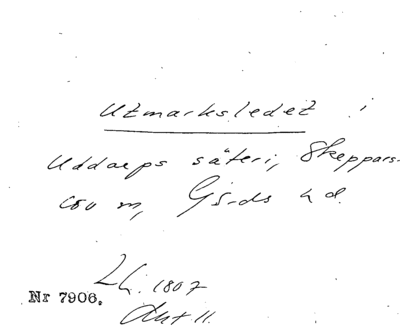 Utmarksledet i
Uddarps säteri, Skeppars-
löv m, Gärds hd.
1807
Nr 7906.
Akt 11.